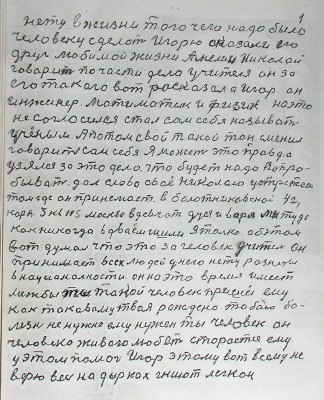 1
нету в жизни того чего надо было
человеку сделот Игорю сказали его
друг любимой жизни Николай
говорит по части дела учителя он за
его такаго вот росказала Игор. он
инженер. Мотиматик и физик на это
не согласился стал сам себя называть
учёным А потом свой такой тон сменил
говорит сам себя А может это правда
узялся за это дело, что будет надо попро-
бывать. дал слово своё Николаю
том где он принемает в болотниковской 42,
корп 3 кв 115 москва в девчат душ и варя мы туда
как никогда в двоём я только об этом
вот думал что это за человек учител он
принимает всех людей у него нету розници
в нацианалности он на это время имеет
лижбы ты такой человек пришёл ему
как такавому твая рождено тобаю бо-
лезн не нужно ему нужен ты человек он
человека живаго любит сторается ему
у этом помоч Игор этому вот всему не
верю вес на дырках гниют легкои